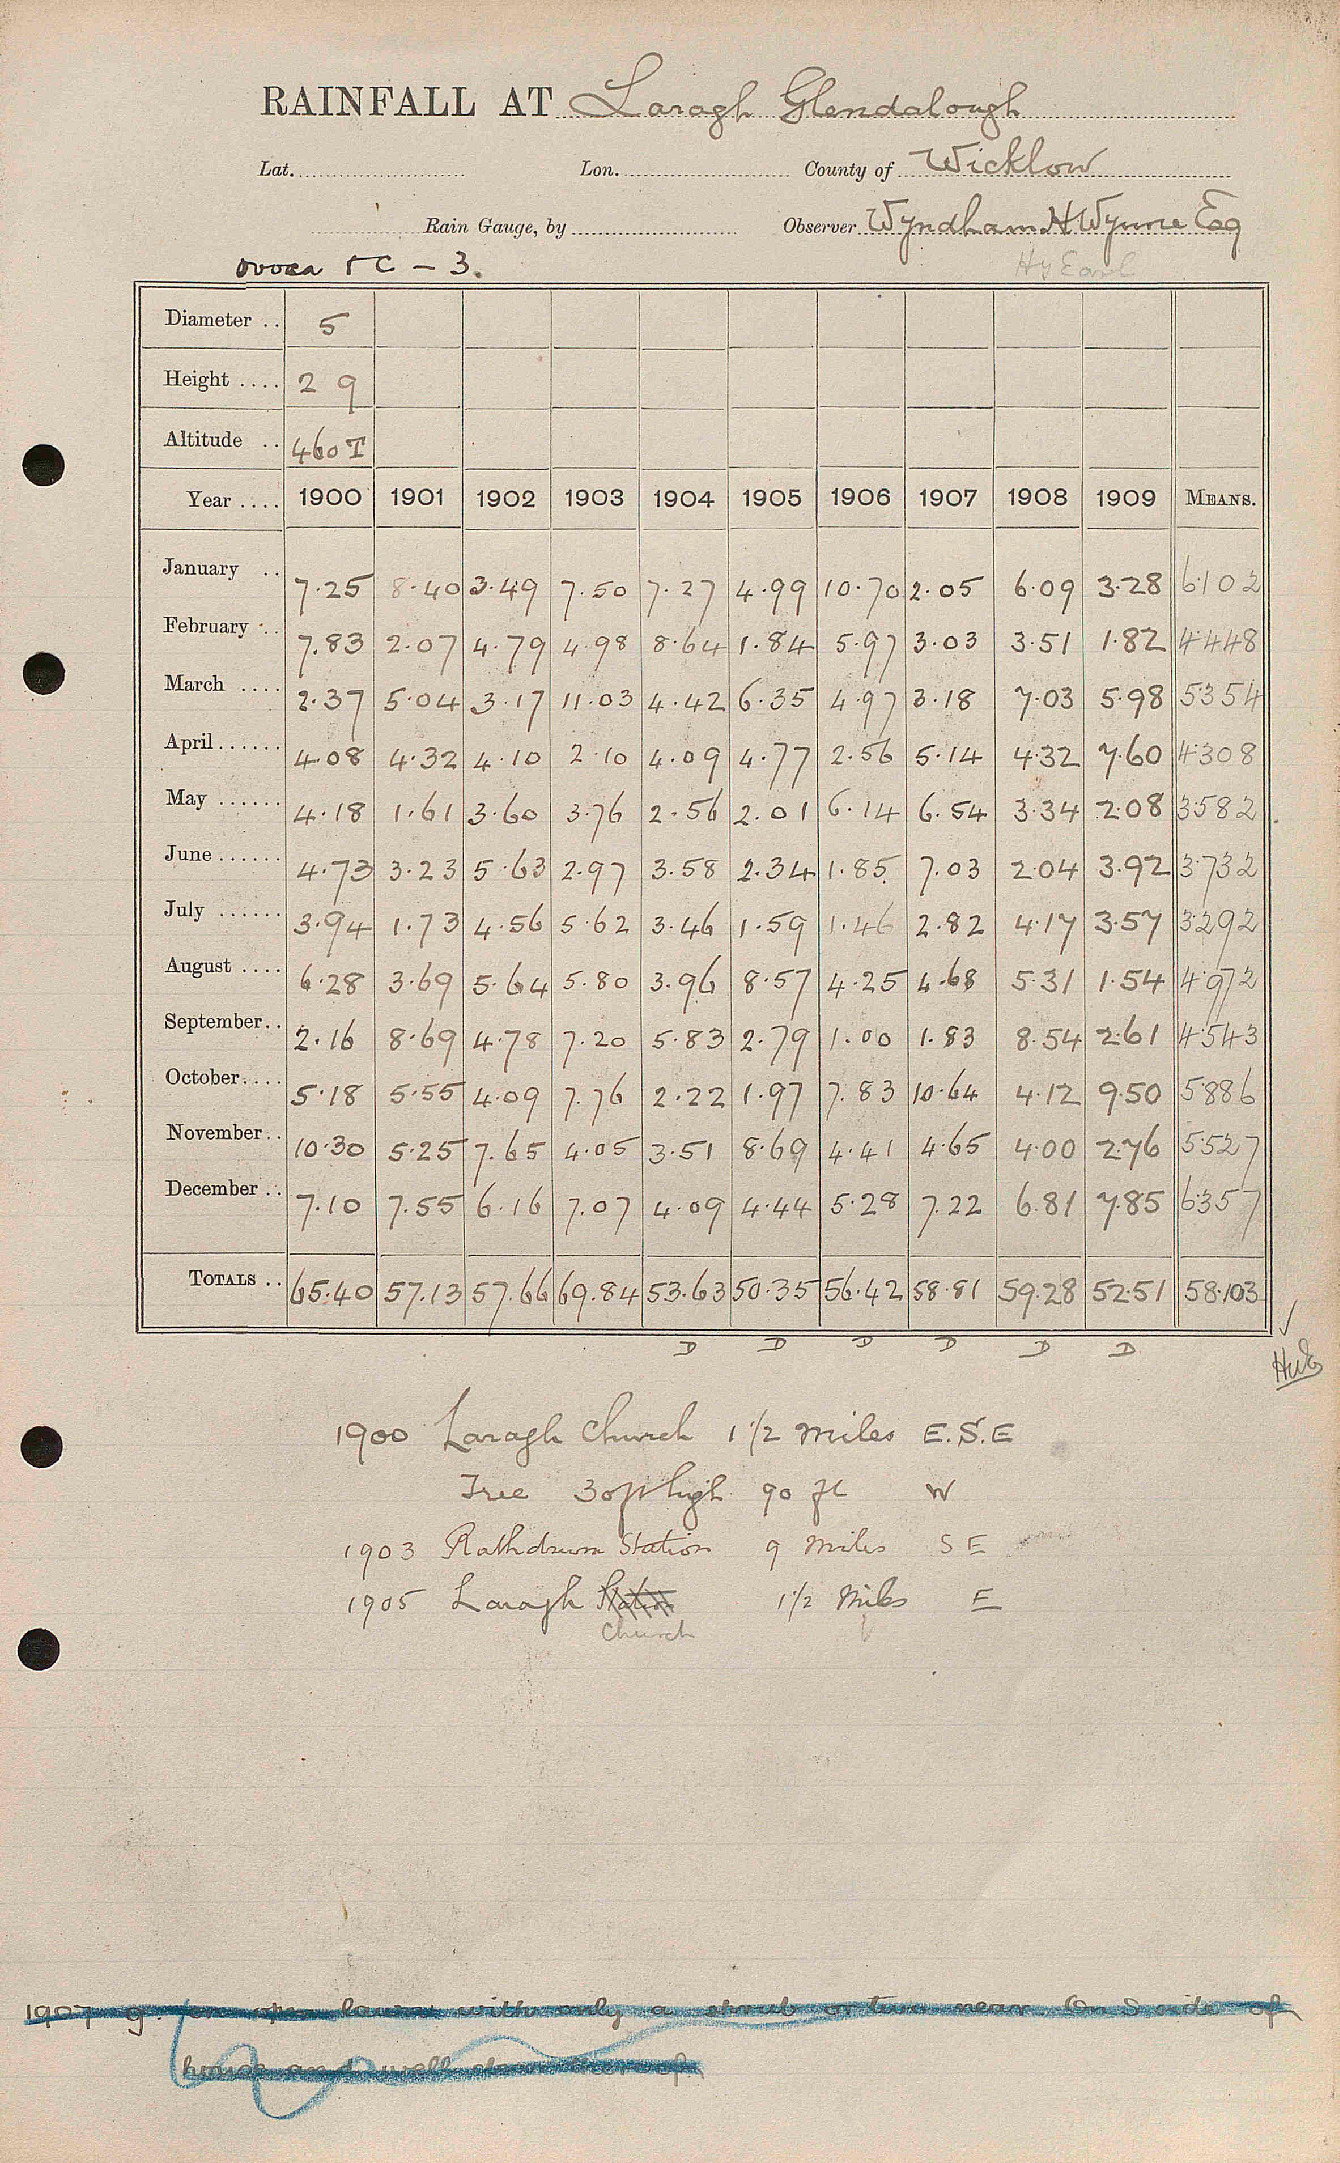 RAINFALL AT Laragh Glendalough
Lat. Lon. County of Wicklow
Rain Gauge, by Observer Wyndham H Wynne Esq
Ovoca TC - 3.
Diameter .. 5
Height .... 2 9
Altitude .. 460 T
Year .... 1900 1901 1902 1903 1904 1905 1906 1907 1908 1909 MEANS.
January .. 7.25 8.40 3.49 7.50 7.27 4.99 10.70 2.05 6.09 3.28 6.102
February .. 7.83 2.07 4.79 4.98 8.64 1.84 5.97 3.03 3.51 1.82 4.448
March .... 2.37 5.04 3.17 11.03 4.42 6.35 4.97 3.18 7.03 5.98 5.354
April ...... 4.08 4.32 4.10 2.10 4.09 4.77 2.56 5.14 4.32 7.60 4.308
May ...... 4.18 1.61 3.60 3.76 2.56 2.01 6.14 6.54 3.34 2.08 3.582
June ...... 4.73 3.23 5.63 2.97 3.58 2.34 1.85 7.03 2.04 3.92 3.732
July ...... 3.94 1.73 4.56 5.62 3.46 1.59 1.46 2.82 4.17 3.57 3.292
August .... 6.28 3.69 5.64 5.80 3.96 8.57 4.25 4.68 5.31 1.54 4.972
September .. 2.16 8.69 4.78 7.20 5.83 2.79 1.00 1.83 8.54 2.61 4.543
October .... 5.18 5.55 4.09 7.76 2.22 1.97 7.83 10.64 4.12 9.50 5.886
November .. 10.30 5.25 7.65 4.05 3.51 8.69 4.41 4.65 4.00 2.76 5.527
December .. 7.10 7.55 6.16 7.07 4.09 4.44 5.28 7.22 6.81 7.85 6.357
TOTALS .. 65.40 57.13 57.66 69.84 53.63 50.35 56.42 58.81 59.28 52.51 58.103
D D D D D D
1900 Laragh Church 1 1/2 miles E.S.E
Tree 30ft high 90 ft W
1903 Rathdrum Station 9 miles S E
1905 Laragh Station 1 1/2 Miles E
Church
1907 g. on open lawn with only a shrub or two near. On S side of
house and well clear thereof